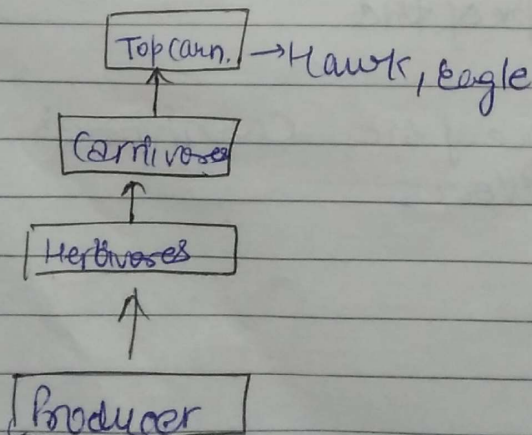 Top Carn. → Hawk, Eagle
Carnivores
Herbivores
Producer